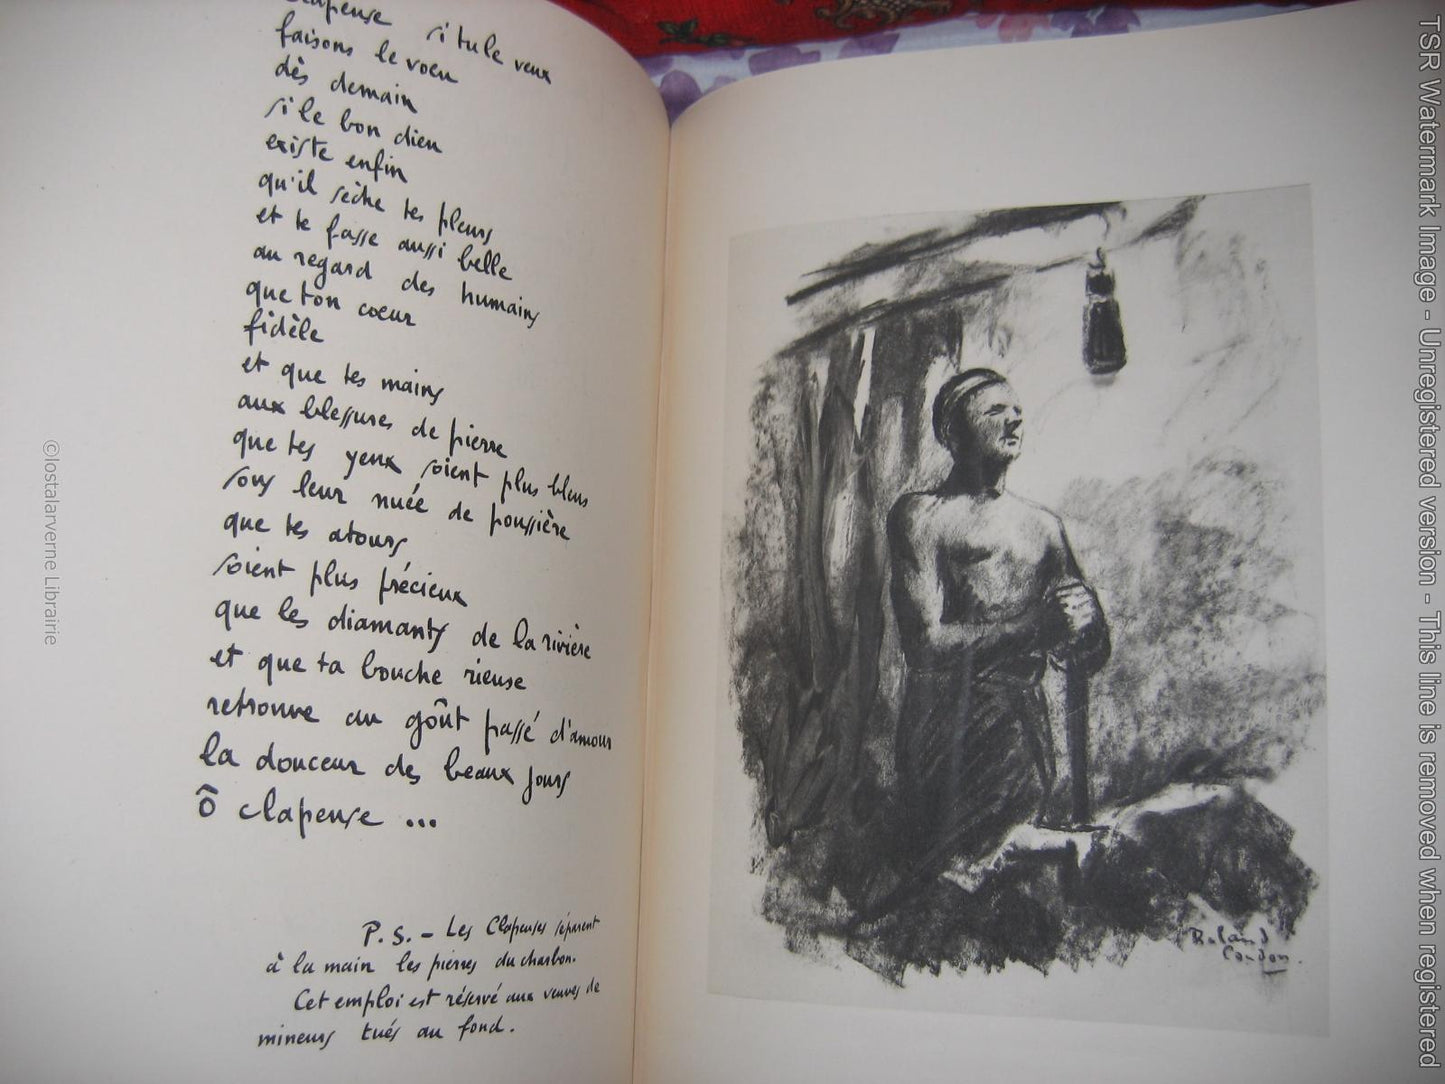 Clapeuse si tu le veux
faisons le voeu
dès demain
si le bon dieu
existe enfin
qu'il sèche tes pleurs
et te fasse aussi belle
au regard des humains
que ton coeur
fidèle
et que tes mains
aux blessures de pierre
que tes yeux soient plus bleus
sous leur nuée de poussière
que tes atours
soient plus précieux
que les diamants de la rivière
et que ta bouche rieuse
retrouve au goût passé d'amour
la douceur des beaux jours
ô clapeuse ...
P.S. - Les Clapeuses séparent
à la main les pierres du charbon.
Cet emploi est réservé aux veuves de
mineurs tués au fond.
Roland
Cardon.
©lostalarverne Librairie
TSR Watermark Image - Unregistered version - This line is removed when registered